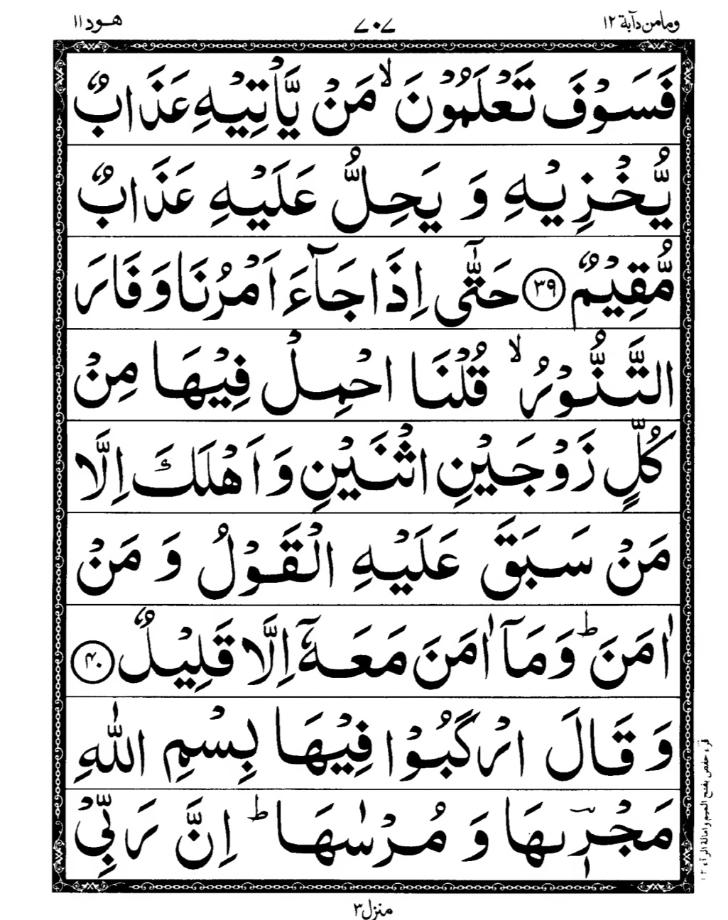 ومامن دآبة ١٢
٧٠٧
هود ١١
فَسَوْفَ تَعْلَمُوْنَ ۙ مَنْ يَّاْتِيْهِ عَذَابٌ
يُّخْزِيْهِ وَ يَحِلُّ عَلَيْهِ عَذَابٌ
مُّقِيْمٌ ﴿۳۹﴾ حَتّٰۤى اِذَا جَآءَ اَمْرُنَا وَ فَارَ
التَّنُّوْرُ ۙ قُلْنَا احْمِلْ فِيْهَا مِنْ
كُلٍّ زَوْجَيْنِ اثْنَيْنِ وَ اَهْلَكَ اِلَّا
مَنْ سَبَقَ عَلَيْهِ الْقَوْلُ وَ مَنْ
اٰمَنَ ؕ وَ مَاۤ اٰمَنَ مَعَهٗۤ اِلَّا قَلِيْلٌ ﴿۴۰﴾
وَ قَالَ ارْكَبُوْا فِيْهَا بِسْمِ اللّٰهِ
مَجْرٖىهَا وَ مُرْسٰىهَا ؕ اِنَّ رَبِّيْ
قرء حفص بفتح الميم وامالة الراء ١٢
منزل ٣